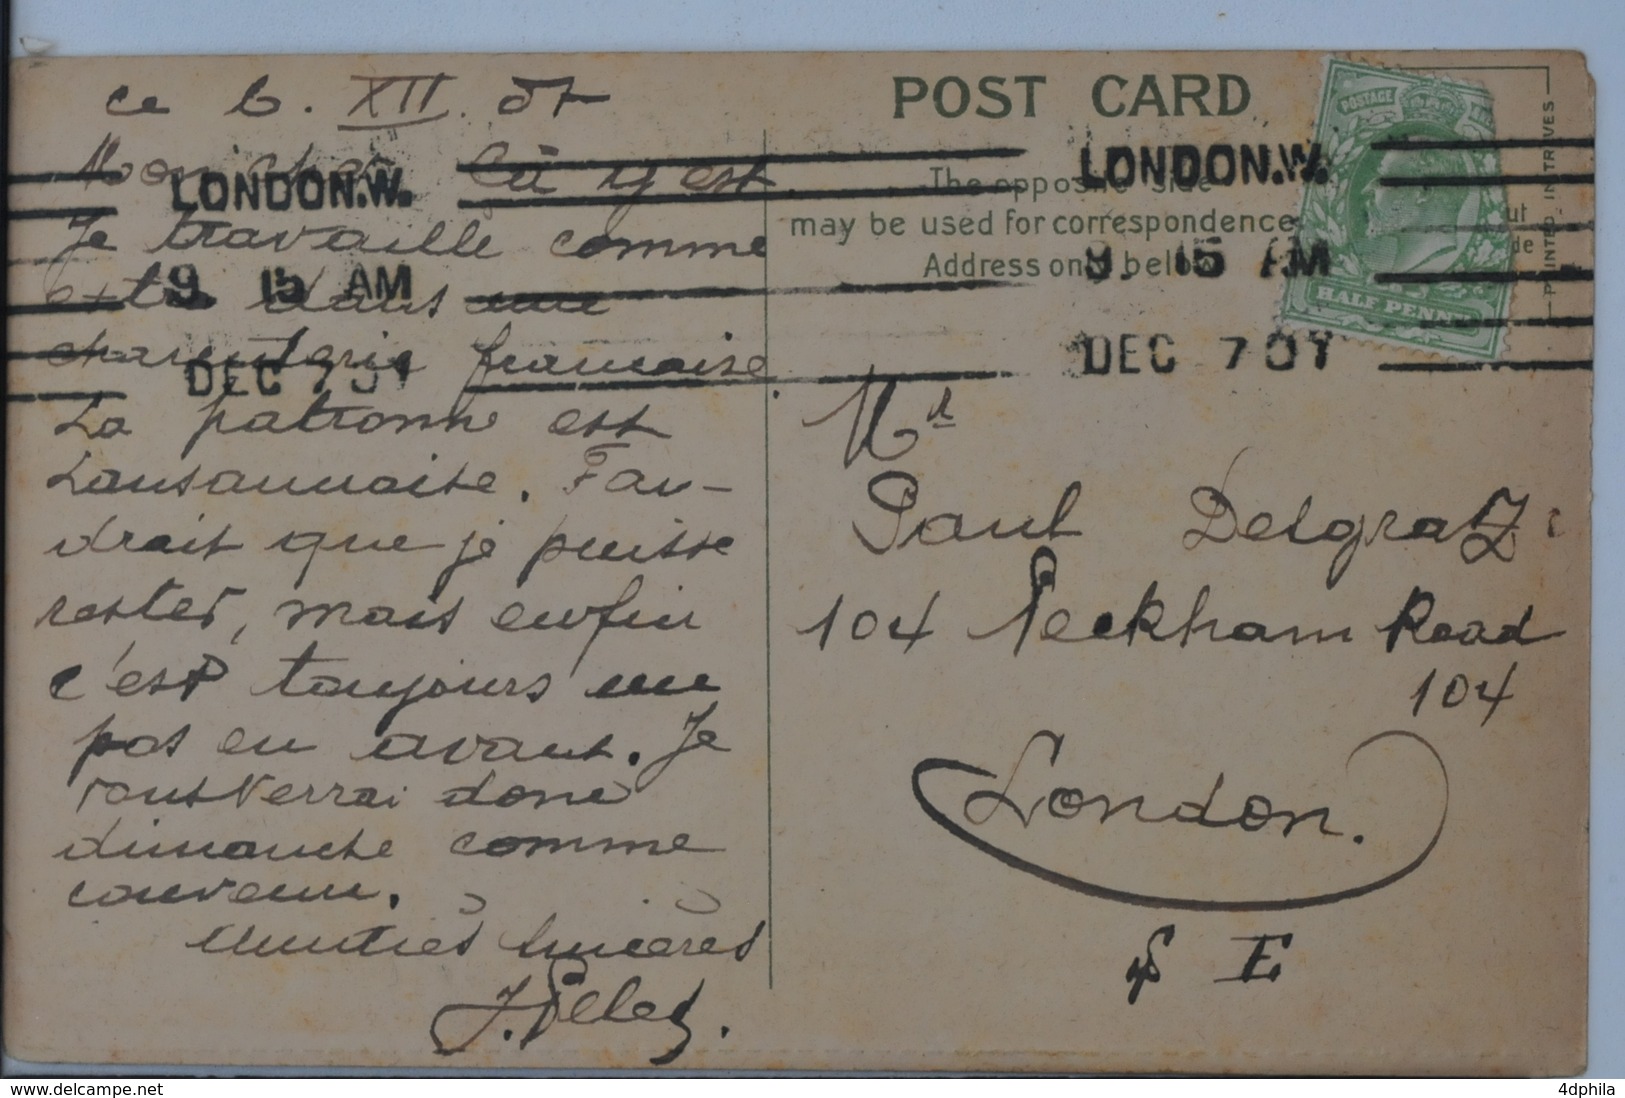 ce 6. XII. 07
Mon cher Ça y est.
Je travaille comme
extra dans une
charcuterie française.
La patronne est
Lausannoise. Fau-
drait que je puisse
rester, mais enfin
c'est toujours un
pas en avant. Je
vous verrai donc
dimanche comme
convenu.
Amitiés sincères
LONDON.W.
9. 15 AM
DEC 7 07
POST CARD
The opposite side
may be used for correspondence
Address only below
LONDON.W.
9. 15 AM
DEC 7 07
POSTAGE
HALF PENNY
PRINTED IN TREVES
Mr
Paul Delgratz
104 Peckham Road
104
London.
S E
4dphila